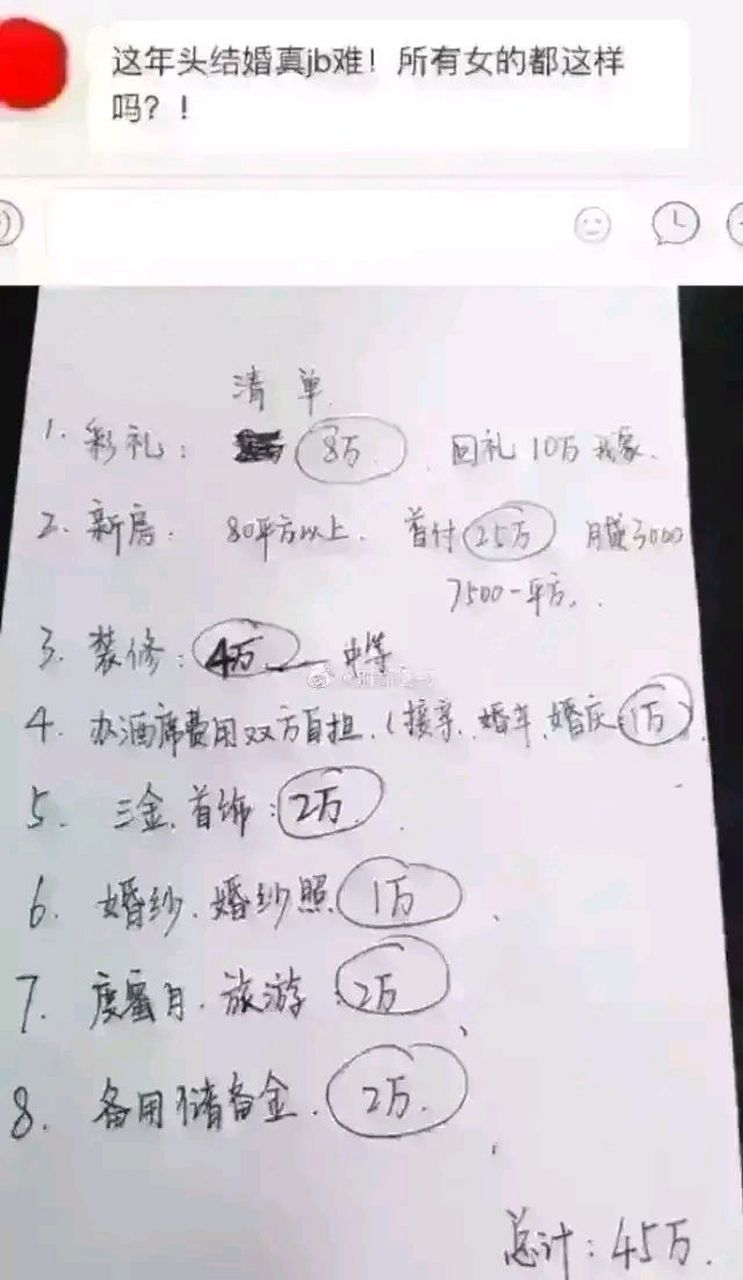 这年头结婚真jb难！所有女的都这样
吗？！
清单
1. 彩礼： 8万. 回礼10万 我家.
2. 新房： 80平方以上. 首付25万 月贷3000
7500一平方.
3. 装修：4万 中等
4. 办酒席费用双方自担.（接亲、婚车、婚庆：1万）.
5. 三金、首饰：2万.
6. 婚纱、婚纱照 1万、
7. 度蜜月、旅游：2万、
8. 备用储备金. 2万.
总计：45万.